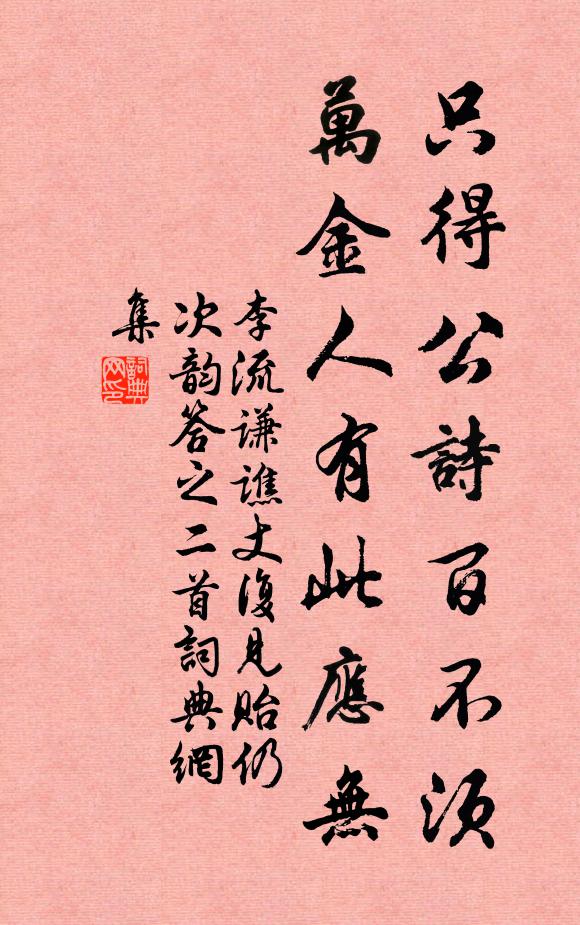 只得公詩百不須
萬金人有此應無
李流謙譙丈復見貽仍
次韵答之二首詞典網
集
詞典
网印